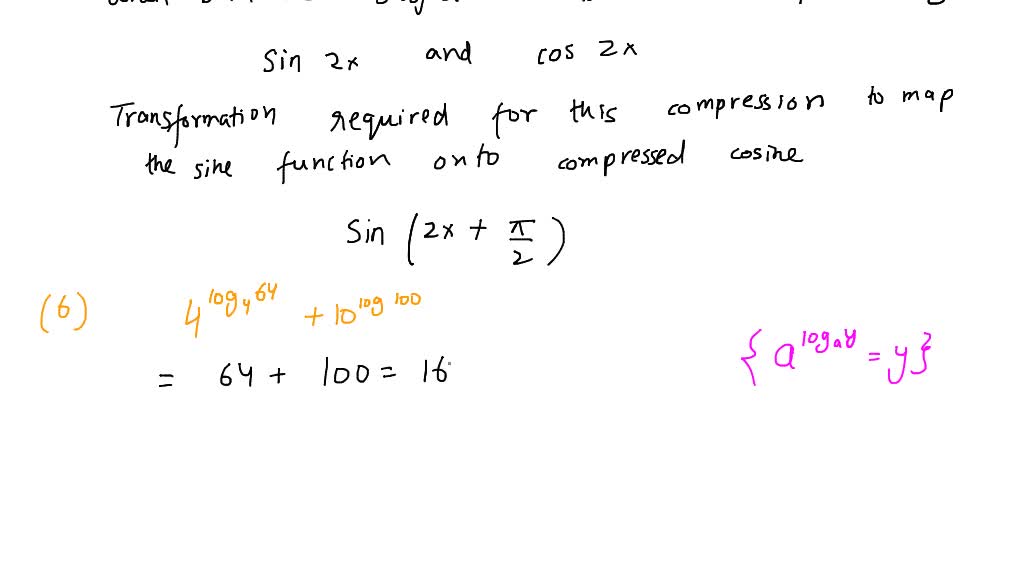 sin 2x and cos 2x
Transformation required for this compression to map
the sine function onto compressed cosine
sin (2x + π/2)
(6) 4^{log_4 64} + 10^{log 100}
= 64 + 100 = 16
{a^{log_a y} = y}